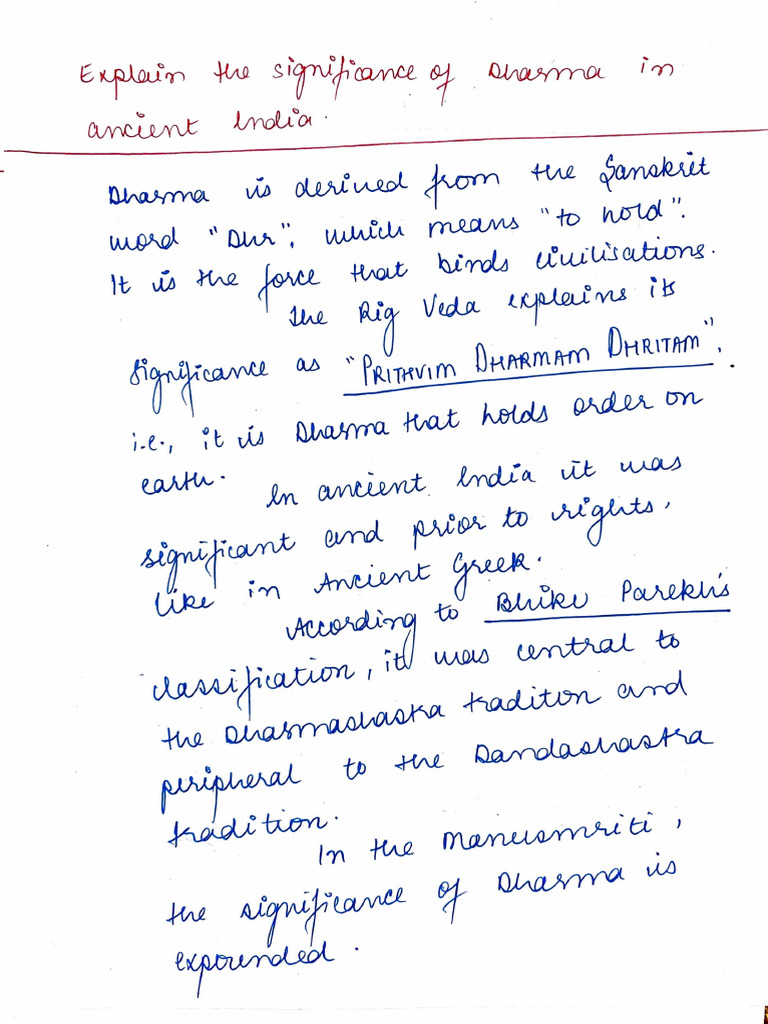 Explain the significance of Dharma in
ancient India.
Dharma is derived from the Sanskrit
word "Dhr", which means "to hold".
It is the force that binds civilisations.
The Rig Veda explains its
significance as "PRITHVIM DHARMAM DHRITAM".
i.e., it is Dharma that holds order on
earth.
In ancient India it was
significant and prior to rights,
like in Ancient Greek.
According to Bhiku Parekh's
classification, it was central to
the Dharmashastra traditon and
peripheral to the Dandashastra
tradition.
In the Manusmriti,
the significance of Dharma is
expounded.